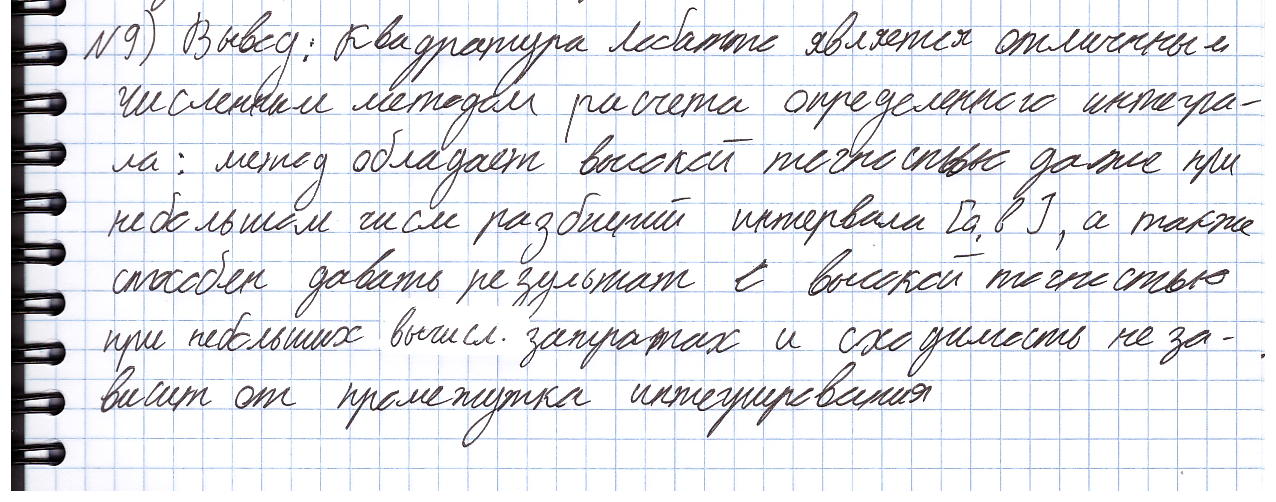 №9) Вывод: Квадратура Лобатто является отличным
численным методом расчета определенного интегра-
ла: метод обладает высокой точностью даже при
небольшом числе разбиений интервала [a, b], а также
способен давать результат с высокой точностью
при небольших вычисл. затратах и сходимость не за-
висит от промежутка интегрирования